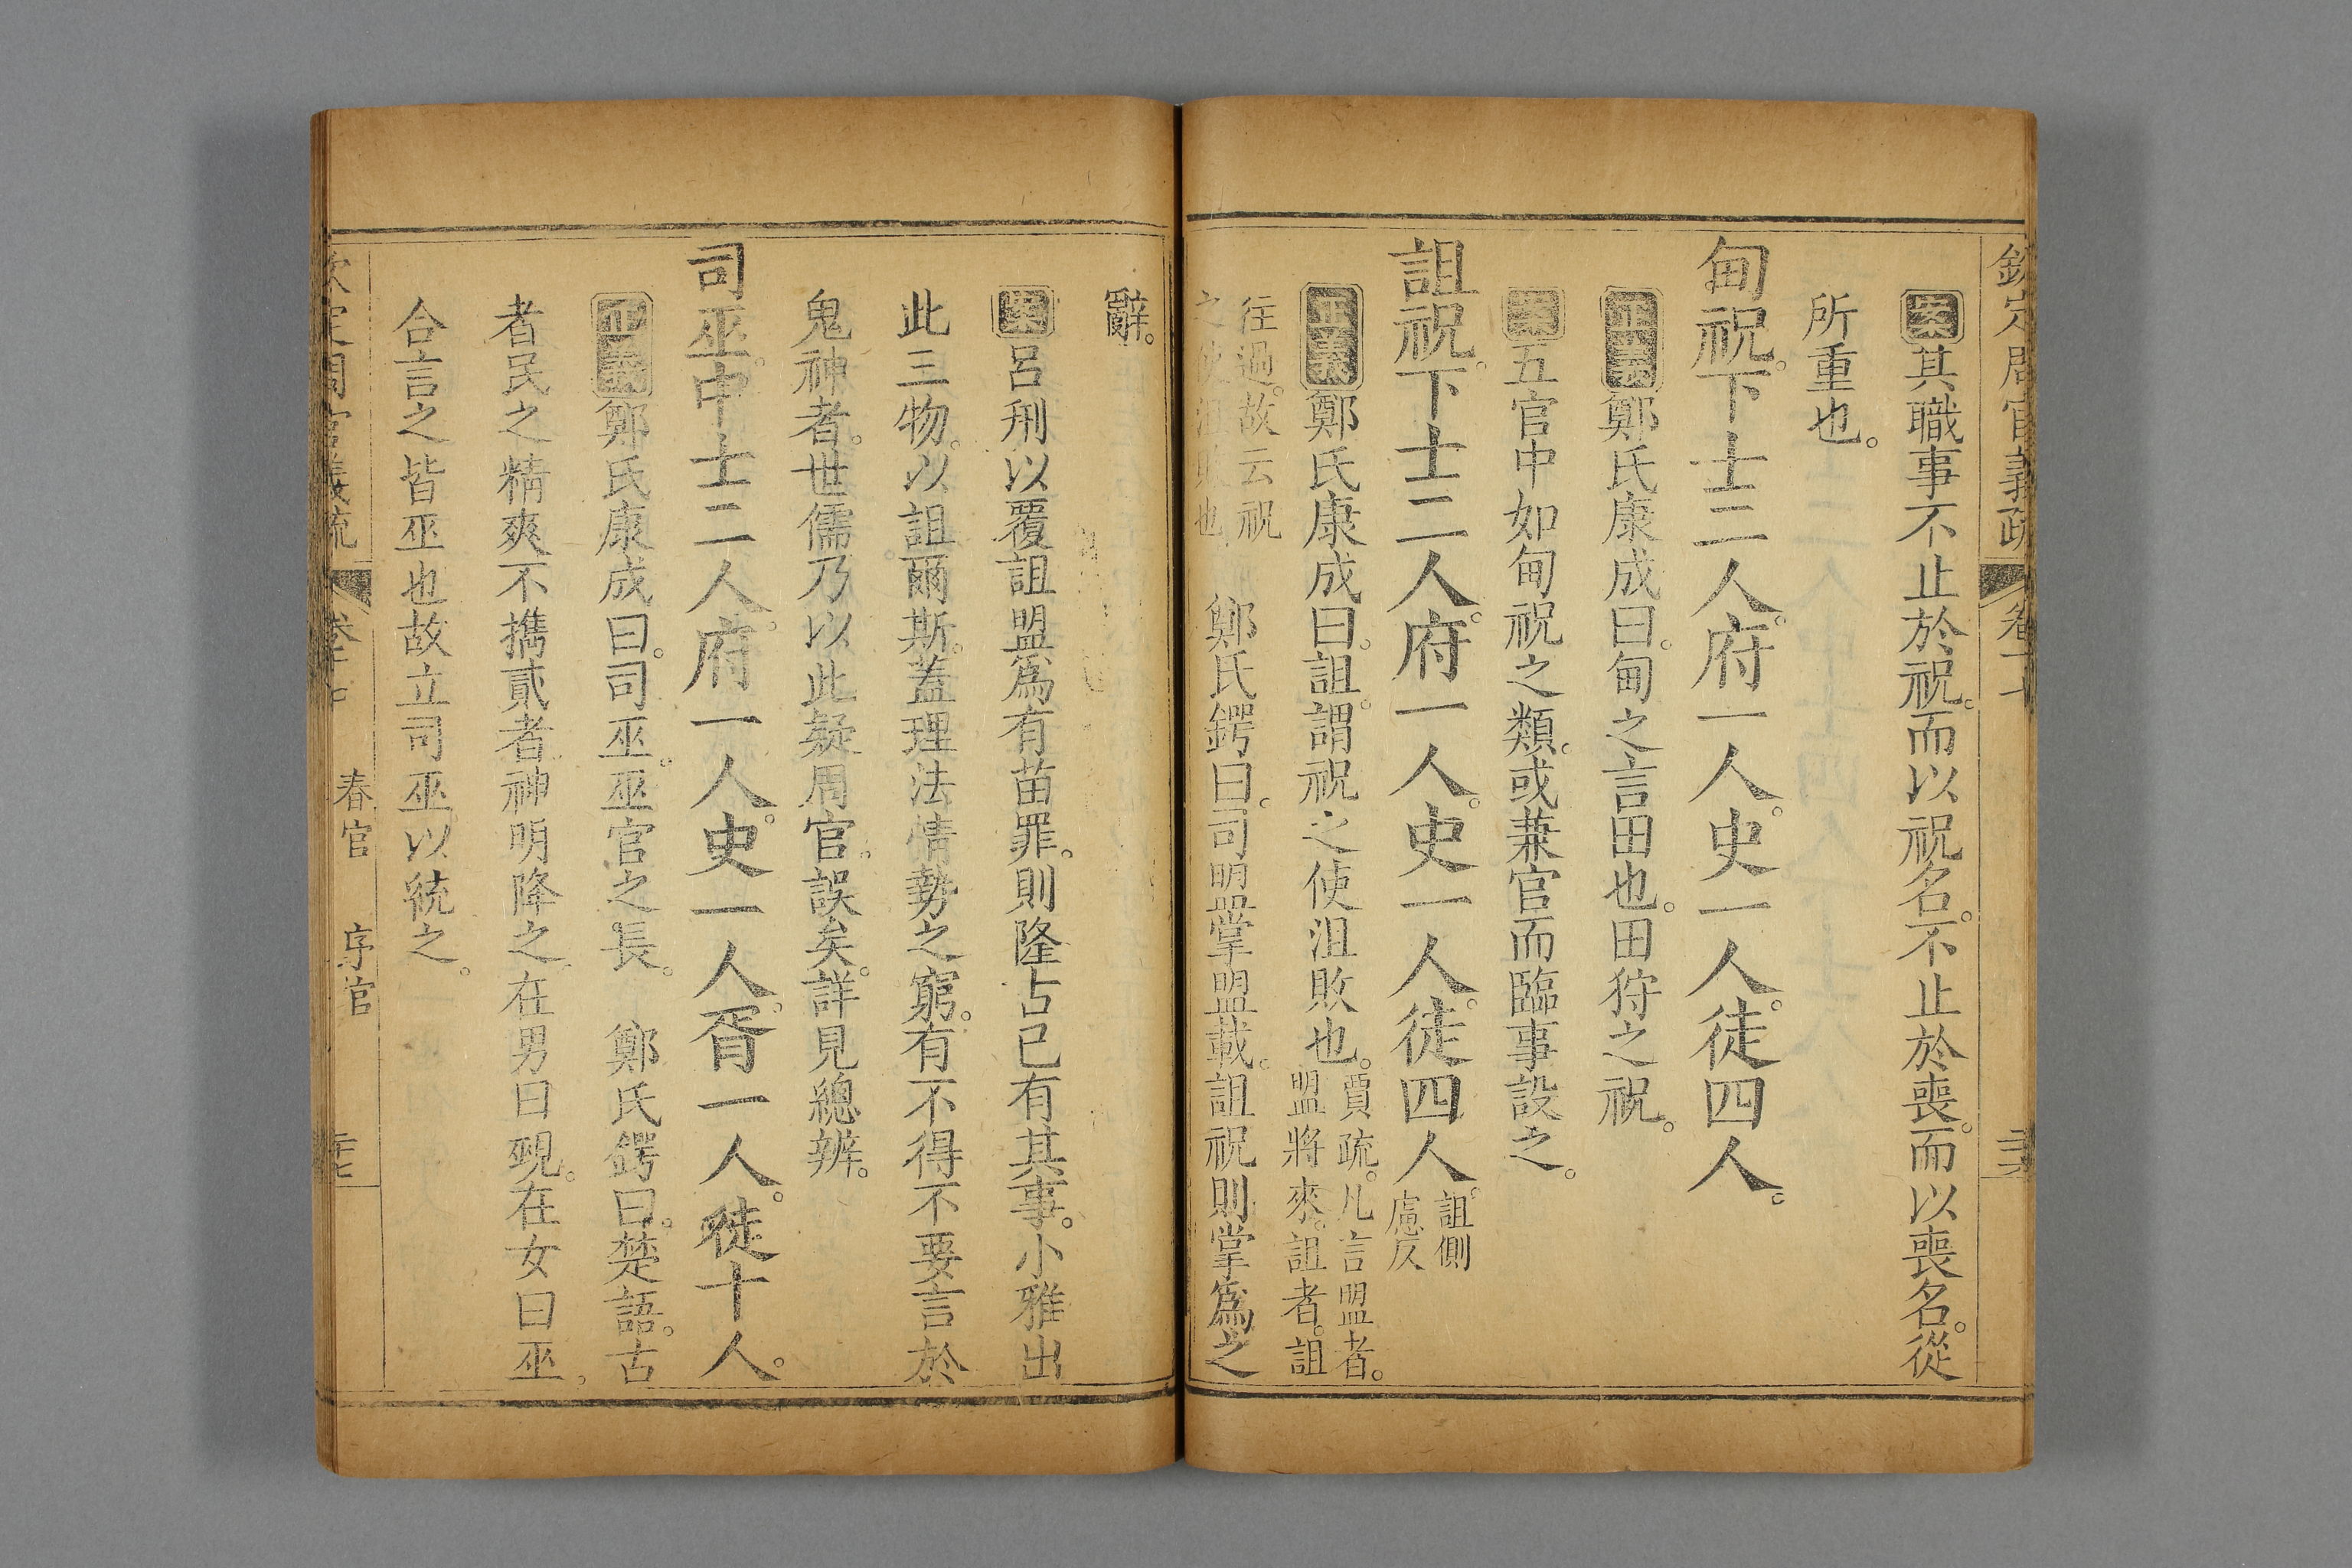 欽定周官義疏 卷十七
案其職事不止於祝。而以祝名。不止於喪。而以喪名。從
所重也。
甸祝。下士二人。府一人。史一人。徒四人。
正義鄭氏康成曰。甸之言田也。田狩之祝。
案五官中如甸祝之類。或兼官而臨事設之。
詛祝。下士二人。府一人。史一人。徒四人。詛側
慮反
正義鄭氏康成曰。詛。謂祝之使沮敗也。賈疏。凡言盟者。
盟將來。詛者。詛
往過。故云祝
之使沮敗也
鄭氏鍔曰。司盟掌盟載。詛祝則掌為之
辭。
案呂刑以覆詛盟為有苗罪。則隆古已有其事。小雅出
此三物。以詛爾斯。蓋理法情勢之窮。有不得不要言於
鬼神者。世儒乃以此疑周官。誤矣。詳見總辨。
司巫。中士二人。府一人。史一人。胥一人。徒十人。
正義鄭氏康成曰。司巫。巫官之長。 鄭氏鍔曰。楚語。古
者民之精爽不攜貳者。神明降之。在男曰覡。在女曰巫。
合言之皆巫也。故立司巫以統之。
欽定周官義疏 卷十七 春官 序官